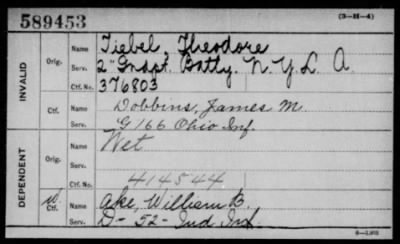 589453
(3-H-4)
INVALID
Orig.
Name Tiebel, Theodore
Serv. 2" Indpt. Batty. N.Y.L. A.
Ctf. No. 376803
Ctf.
Name Dobbins, James M.
Serv. G 166 Ohio Inf.
DEPENDENT
Orig.
Name Wet
Serv.
Ctf. No. 414544
W. Ctf.
Name Ake, William B.
Serv. D- 52- Ind Inf.